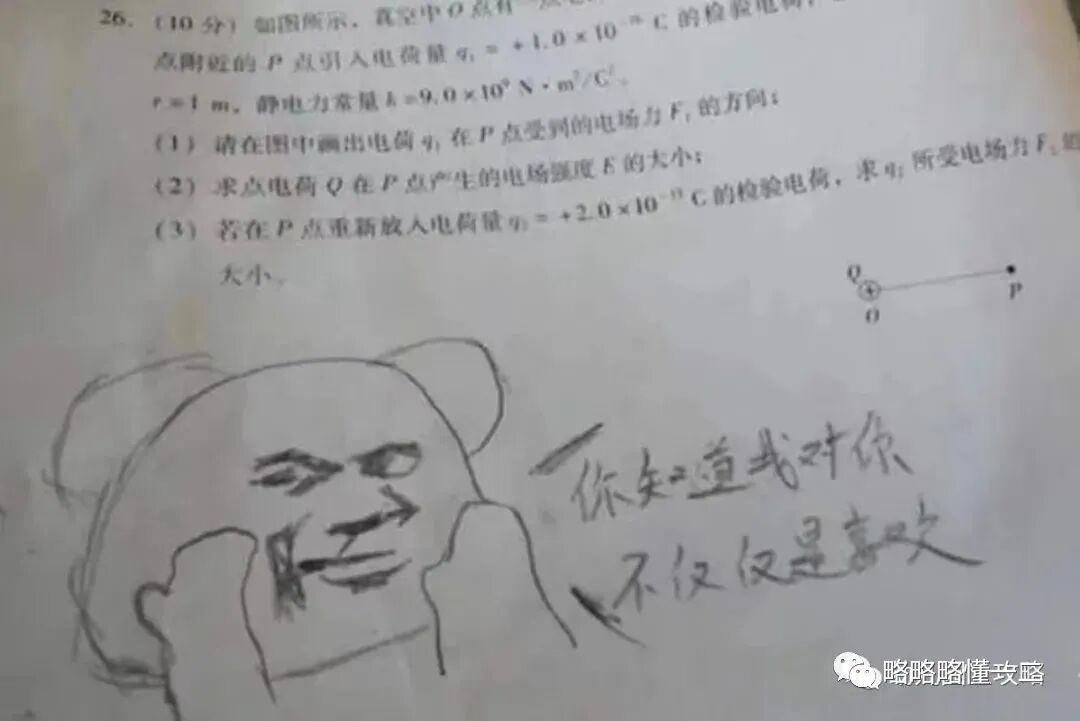 26. (10分) 如图所示，真空中O点有一点电
点附近的P点引入电荷量q₁=+1.0×10 C的检验电荷，
r=1 m，静电力常量k=9.0×10⁹ N·m²/C²。
(1) 请在图中画出电荷q₁在P点受到的电场力F₁的方向；
(2) 求点电荷Q在P点产生的电场强度E的大小；
(3) 若在P点重新放入电荷量q₂=+2.0×10 C的检验电荷，求q₂所受电场力F₂的
大小。
Q
O
P
你知道我对你
不仅仅是喜欢
略略略懂攻略